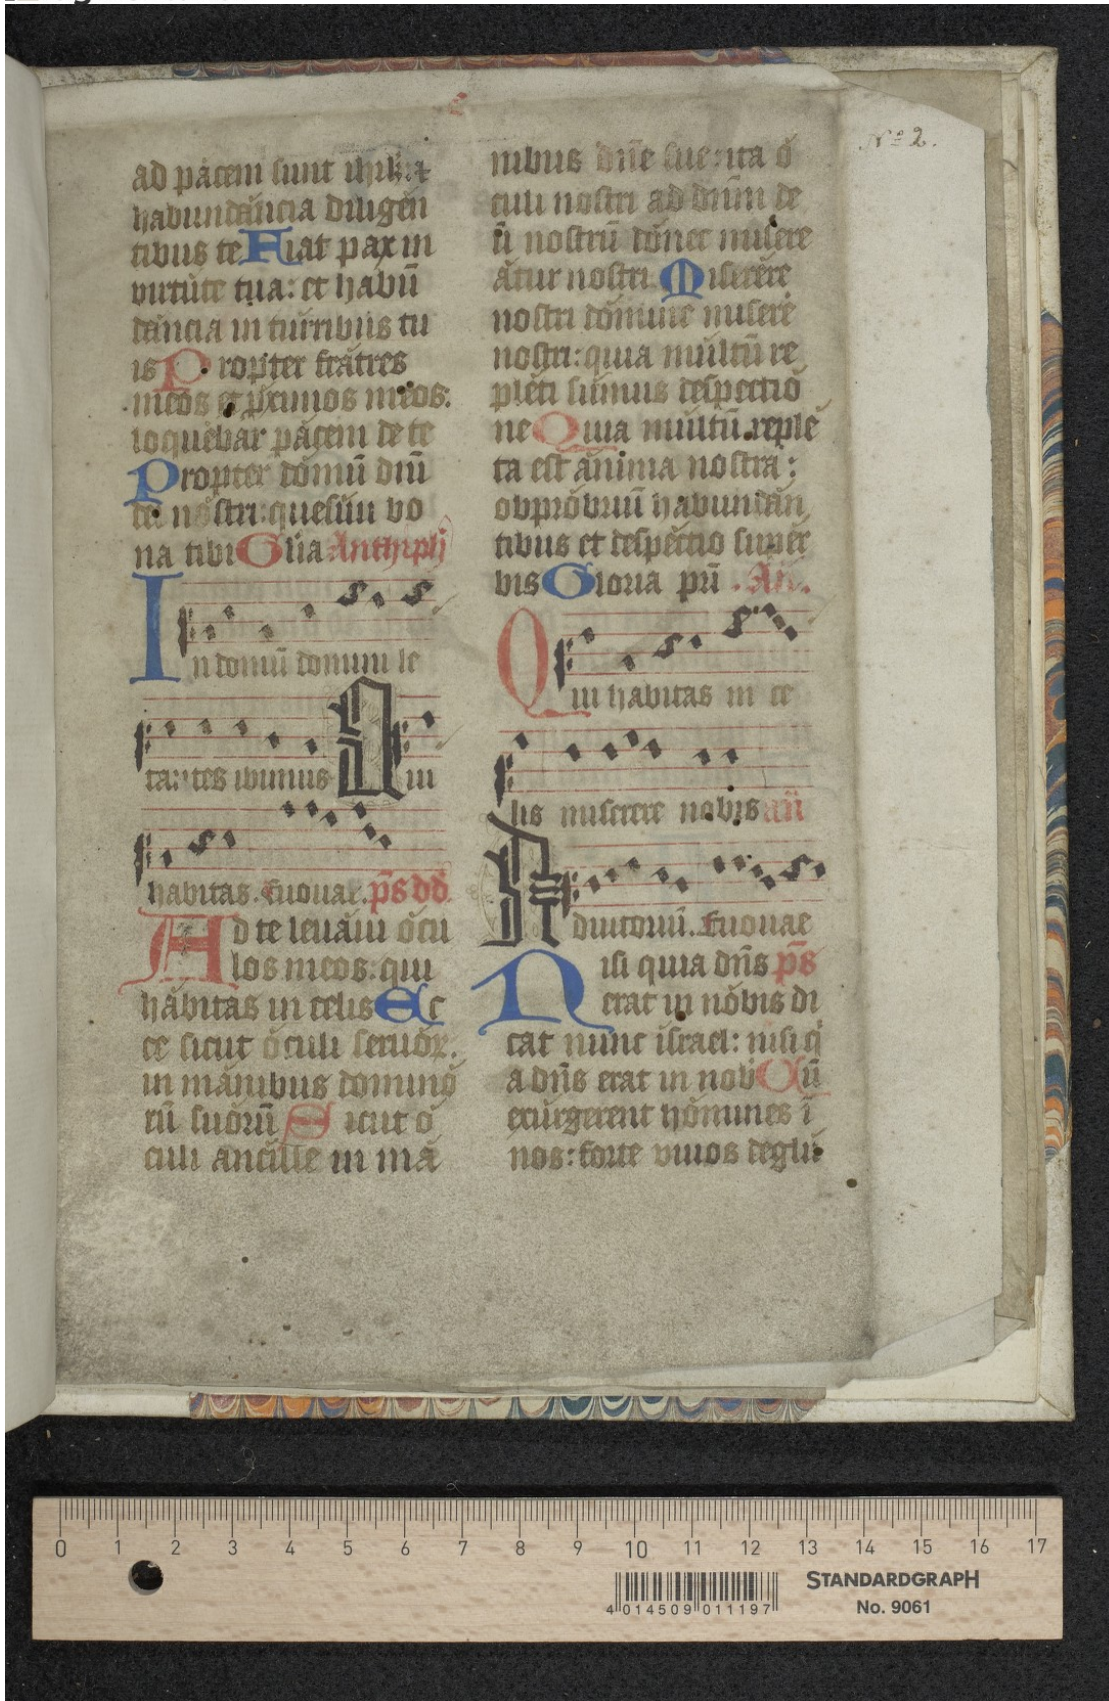 ad pacem sunt ihrl'm: et
habundancia diligen
tibus te Fiat pax in
virtute tua: et habū
dancia in turribus tu
is Propter fratres
meos et p̄ximos meos:
loquebar pacem de te
Propter domū dn̄i
dei nostri: quesiui bo
na tibi Glia Antyrph
In domū domini le
tantes ibimus Qui
habitas. Euouae. ps dd
Ad te leuaui ocu
los meos: qui
habitas in celis Ec
ce sicut oculi seruoꝝ.
in manibus domino
rū suorū Sicut o
culi ancille in ma
nibus dn̄e sue: ita o
culi nostri ad dn̄m de
ū nostrū donec misere
atur nostri Miserere
nostri domine misere
nostri: quia multū re
pleti sumus despectio
ne Quia multū reple
ta est anima nostra:
obprobriū habundan
tibus et despectio super
bis Gloria pr̄i. An.
Qui habitas in ce
lis miserere nobis an̄
Adiutoriū. Euouae
Nisi quia dn̄s ps
erat in nobis di
cat nunc israel: nisi q
a dn̄s erat in nob Cū
exurgerent homines ī
nos: forte viuos deglu
Nº 2.
0 1 2 3 4 5 6 7 8 9 10 11 12 13 14 15 16 17
STANDARDGRAPH
No. 9061
4 014509 011197